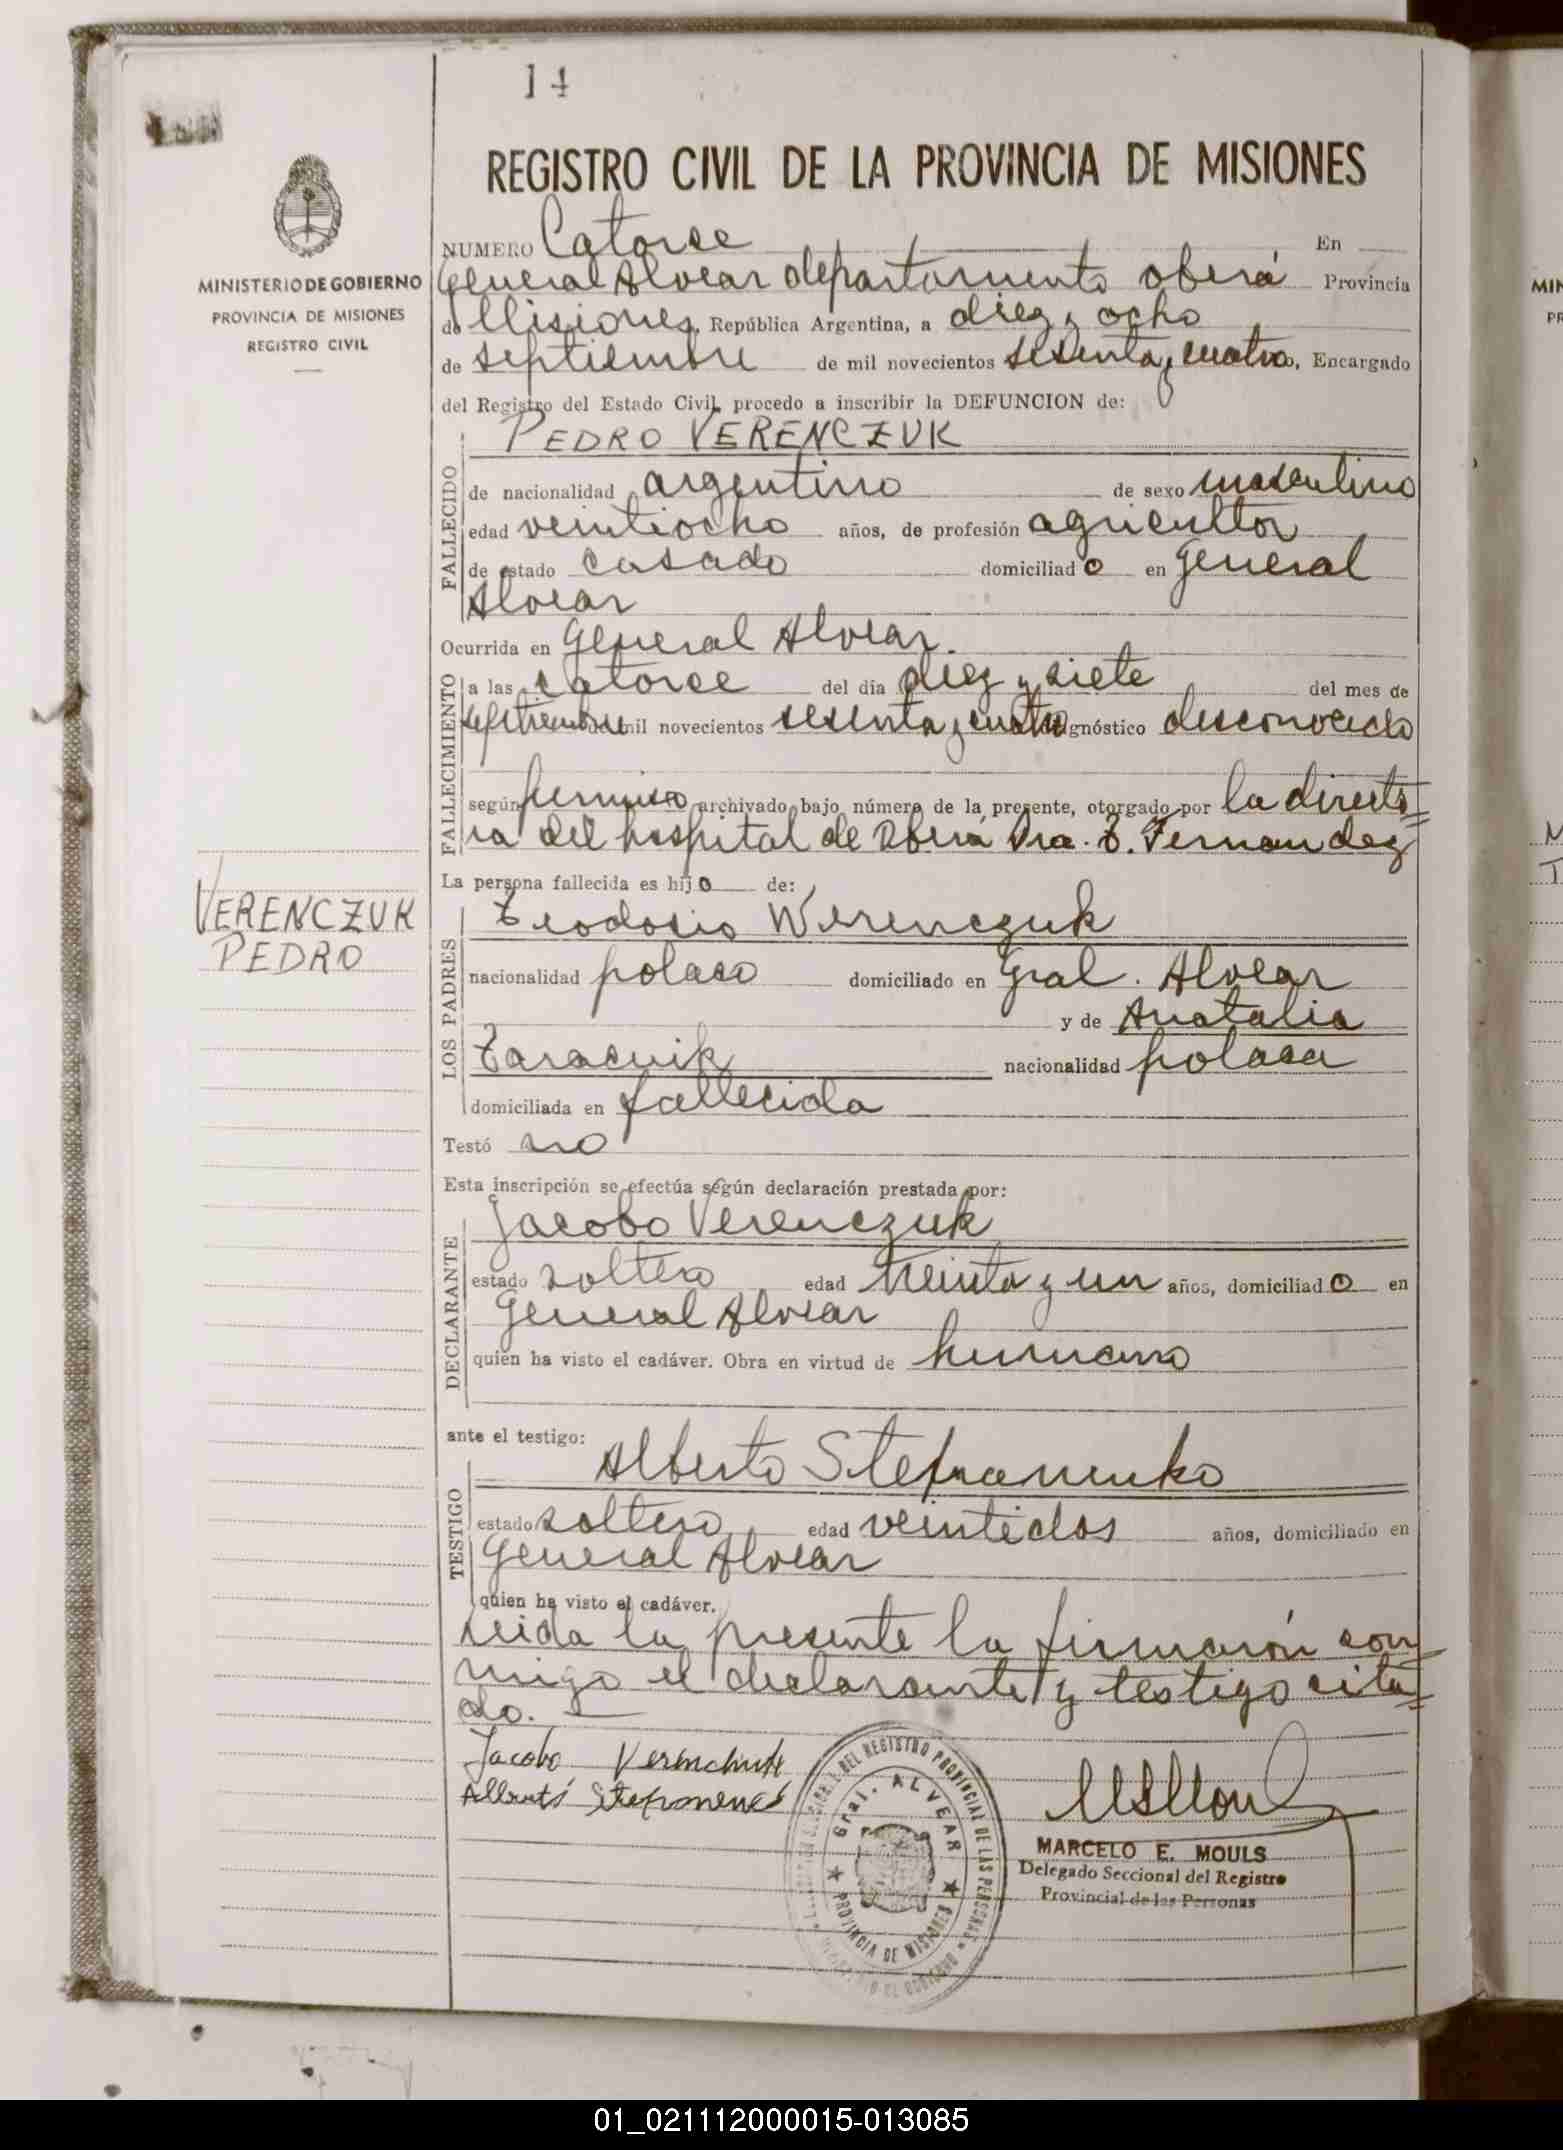 14
REGISTRO CIVIL DE LA PROVINCIA DE MISIONES
MINISTERIO DE GOBIERNO
PROVINCIA DE MISIONES
REGISTRO CIVIL
NUMERO Catorce En
General Alvear departamento oberá Provincia
de Misiones, República Argentina, a diez y ocho
de septiembre de mil novecientos sesenta y cuatro, Encargado
del Registro del Estado Civil, procedo a inscribir la DEFUNCION de:
PEDRO VERENCZUK
FALLECIDO
de nacionalidad argentino de sexo masculino
edad veintiocho años, de profesión agricultor
de estado casado domiciliado en General
Alvear
Ocurrida en General Alvear.
FALLECIMIENTO
a las catorce del día diez y siete del mes de
septiembre de mil novecientos sesenta y cuatro gnóstico desconocido
según permiso archivado bajo número de la presente, otorgado por la directo=
ra del hospital de Oberá Dra. T. Fernandez
La persona fallecida es hijo de:
VERENCZUK
PEDRO
LOS PADRES
Teodosio Werenczuk
nacionalidad polaco domiciliado en Gral. Alvear
y de Anatalia
Taracuik nacionalidad polaca
domiciliada en fallecida
Testó no
Esta inscripción se efectúa según declaración prestada por:
DECLARANTE
Jacobo Verenczuk
estado soltero edad treinta y un años, domiciliado en
General Alvear
quien ha visto el cadáver. Obra en virtud de hermano
ante el testigo:
TESTIGO
Alberto Stefanenko
estado soltero edad veintidos años, domiciliado en
General Alvear
quien ha visto el cadáver.
Leida la presente la firmarón con
migo el declarante y testigo cita=
do.
Jacobo Verenchuk
Alberto
DEL REGISTRO PROVINCIAL DE LAS PERSONAS
Gral. ALVEAR
PROVINCIA DE MISIONES
MARCELO E. MOULS
Delegado Seccional del Registro
Provincial de las Personas
01_021112000015-013085